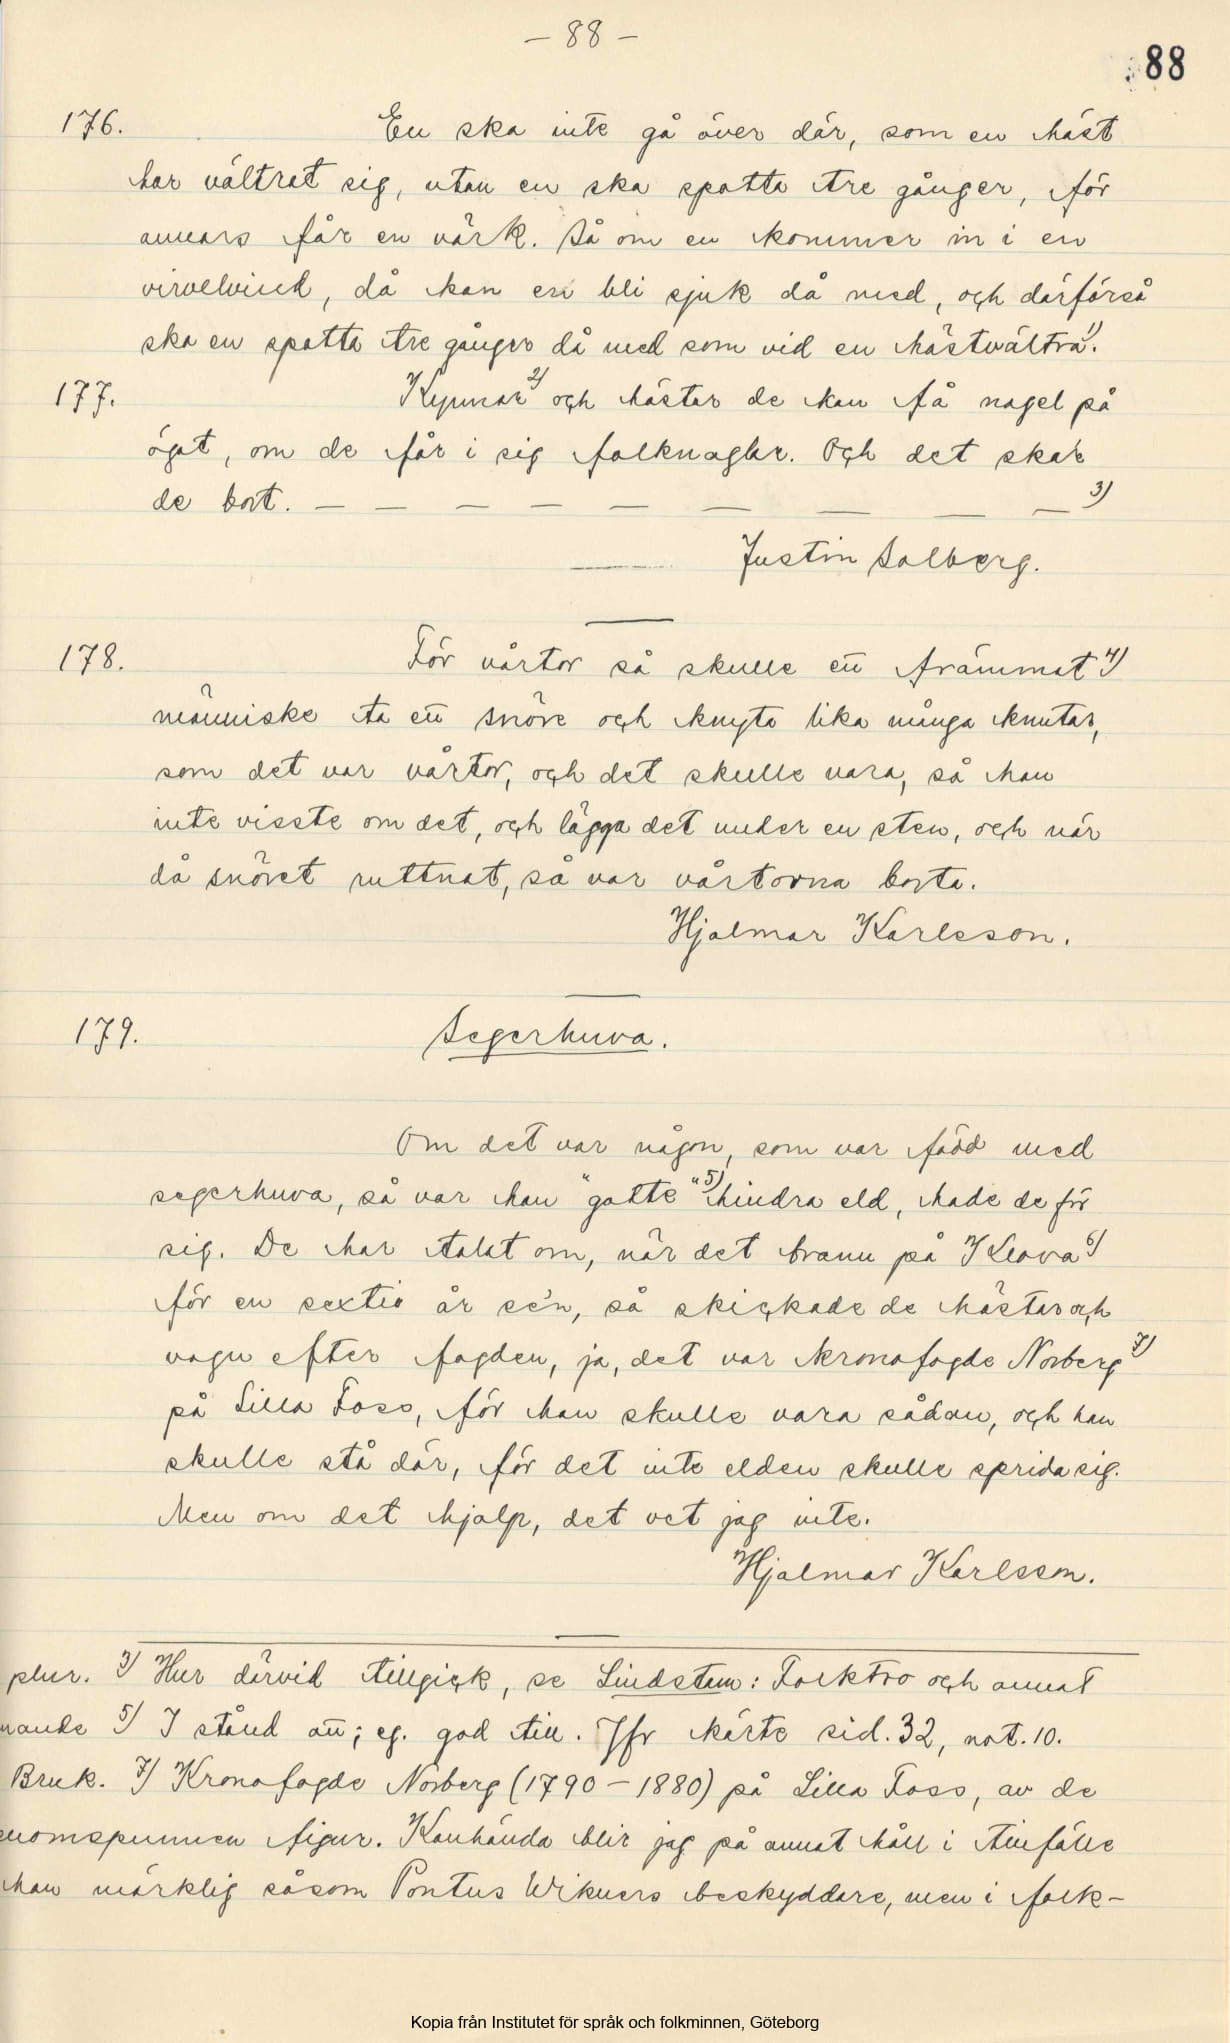 – 88 –
88
176. En ska inte gå över där, som en häst
har vältrat sig, utan en ska spotta tre gånger, för
annars får en värk. Så om en kommer in i en
virvelvind, då kan en bli sjuk då med, och därförså
ska en spotta tre gånger då med som vid en hästvältra1).
177. Kynnar2) och hästar de kan få nagel på
ögat, om de får i sig folknaglar. Och det skar
de bort. — — — — — — — — — 3)
Justin Salberg.
178. För vårtor så skulle en̄ främmat4)
människe ta en̄ snöre och knyta lika många knutar,
som det var vårtor, och det skulle vara, så han
inte visste om det, och lägga det under en sten, och när
då snöret ruttnat, så var vårtorna borta.
Hjalmar Karlsson.
179. Segerhuva.
Om det var någon, som var född med
segerhuva, så var han "gotte"5) hindra eld, hade de för
sig. De har talat om, när det brann på Kleva6)
för en sextio år se'n, så skickade de hästar och
vagn efter fogden, ja, det var kronofogde Norberg7)
på Lilla Foss, för han skulle vara sådan, och han
skulle stå där, för det inte elden skulle sprida sig.
Men om det hjalp, det vet jag inte.
Hjalmar Karlsson.
plur. 3) Hur därvid tillgick, se Lindstam: Folktro och annat
nande 5) I stånd att; eg. god till. Jfr härte sid. 32, not. 10.
Bruk. 7) Kronofogde Norberg (1790–1880) på Lilla Foss, av de
enomspunnen figur. Kanhända blir jag på annat håll i tillfälle
han märklig såsom Pontus Wikners beskyddare, men i folk-
Kopia från Institutet för språk och folkminnen, Göteborg